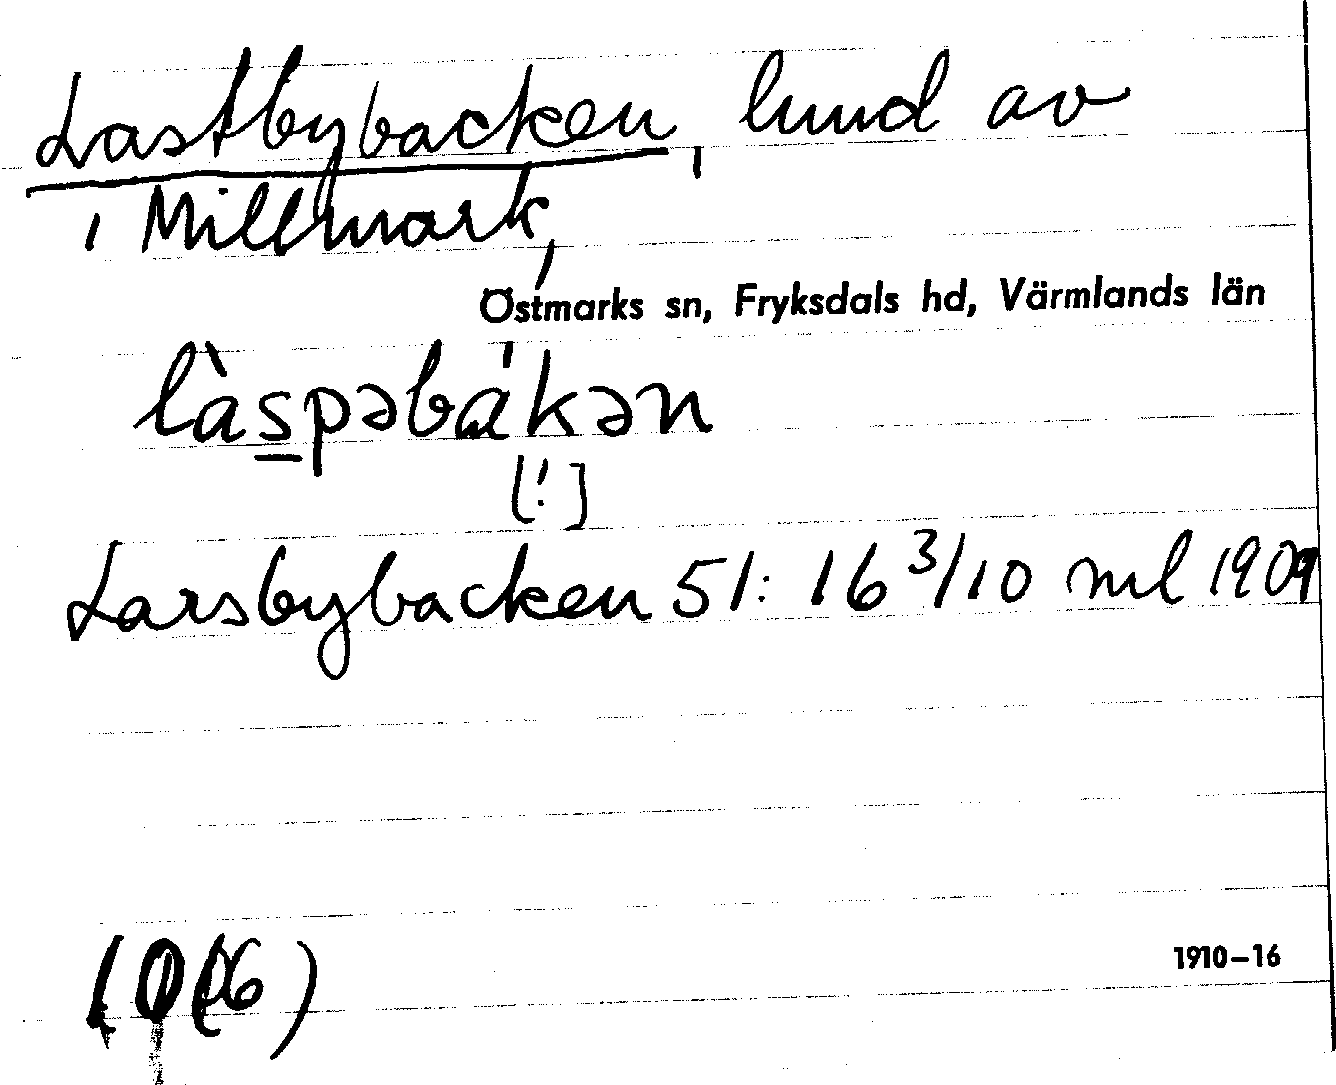 Lastbybacken, lund av
i Millmark,
Östmarks sn, Fryksdals hd, Värmlands län
làspəbákən
[!]
Larsbybacken 51: 16 3/10 ml 1909
1910–16